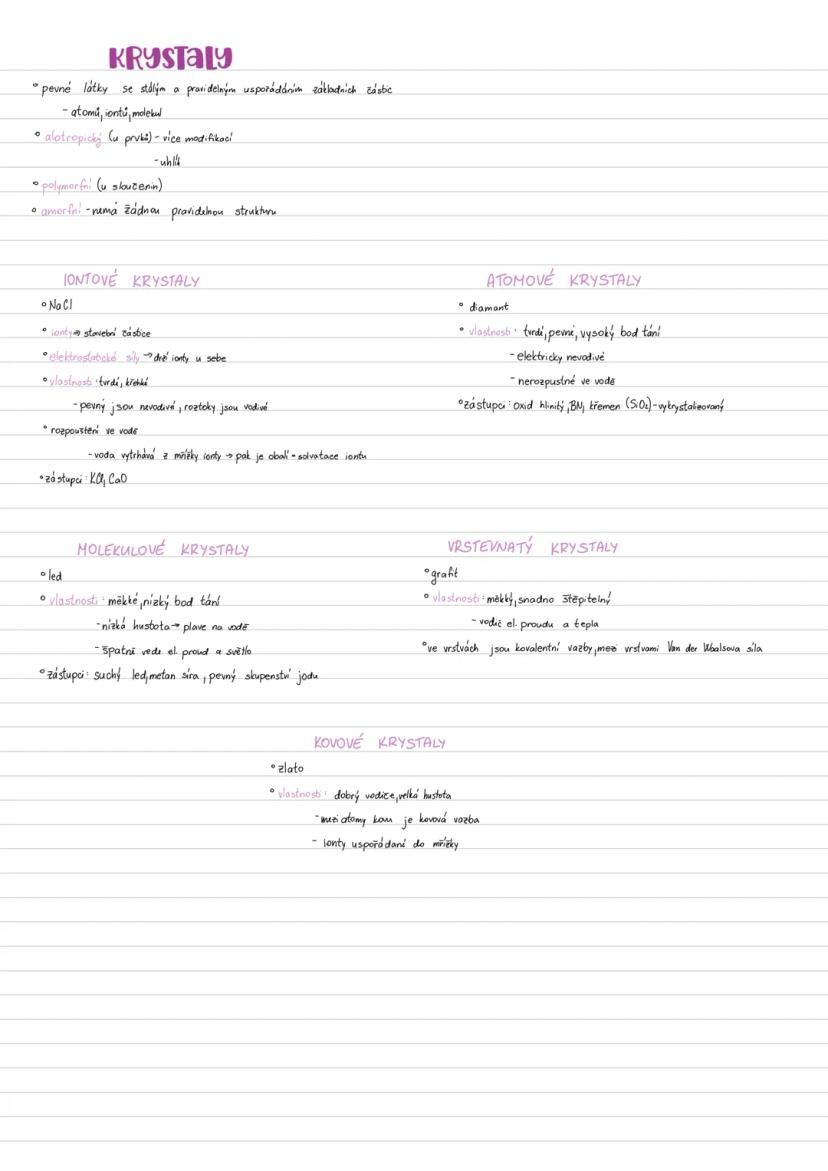 KRYSTALY
° pevné látky se stálým a pravidelným uspořádáním základních částic
- atomů, iontů, molekul
° alotropický (u prvků) - více modifikací
- uhlík
° polymorfní (u sloučenin)
° amorfní - nemá žádnou pravidelnou strukturu
IONTOVÉ KRYSTALY
° NaCl
° ionty ⇒ stavební částice
° elektrostatické síly → drží ionty u sebe
° vlastnosti: tvrdé, křehké
- pevný jsou nevodivé, roztoky jsou vodivé
° rozpouštění ve vodě
- voda vytrhává z mřížky ionty → pak je obalí = solvatace iontu
° zástupci: KCl, CaO
ATOMOVÉ KRYSTALY
° diamant
° vlastnosti: tvrdé, pevné, vysoký bod tání
- elektricky nevodivé
- nerozpustné ve vodě
° zástupci: oxid hlinitý, BN, křemen (SiO₂) - vykrystalizovaný
MOLEKULOVÉ KRYSTALY
° led
° vlastnosti: měkké, nízký bod tání
- nízká hustota → plave na vodě
- špatně vede el. proud a světlo
° zástupci: suchý led, metan síra, pevný skupenství jodu
VRSTEVNATÝ KRYSTALY
° grafit
° vlastnosti: měkký, snadno štěpitelný
- vodič el. proudu a tepla
° ve vrstvách jsou kovalentní vazby, mezi vrstvami Van der Waalsova síla
KOVOVÉ KRYSTALY
° zlato
° vlastnosti: dobrý vodiče, velká hustota
- mezi atomy kovu je kovová vazba
- ionty uspořádané do mřížky